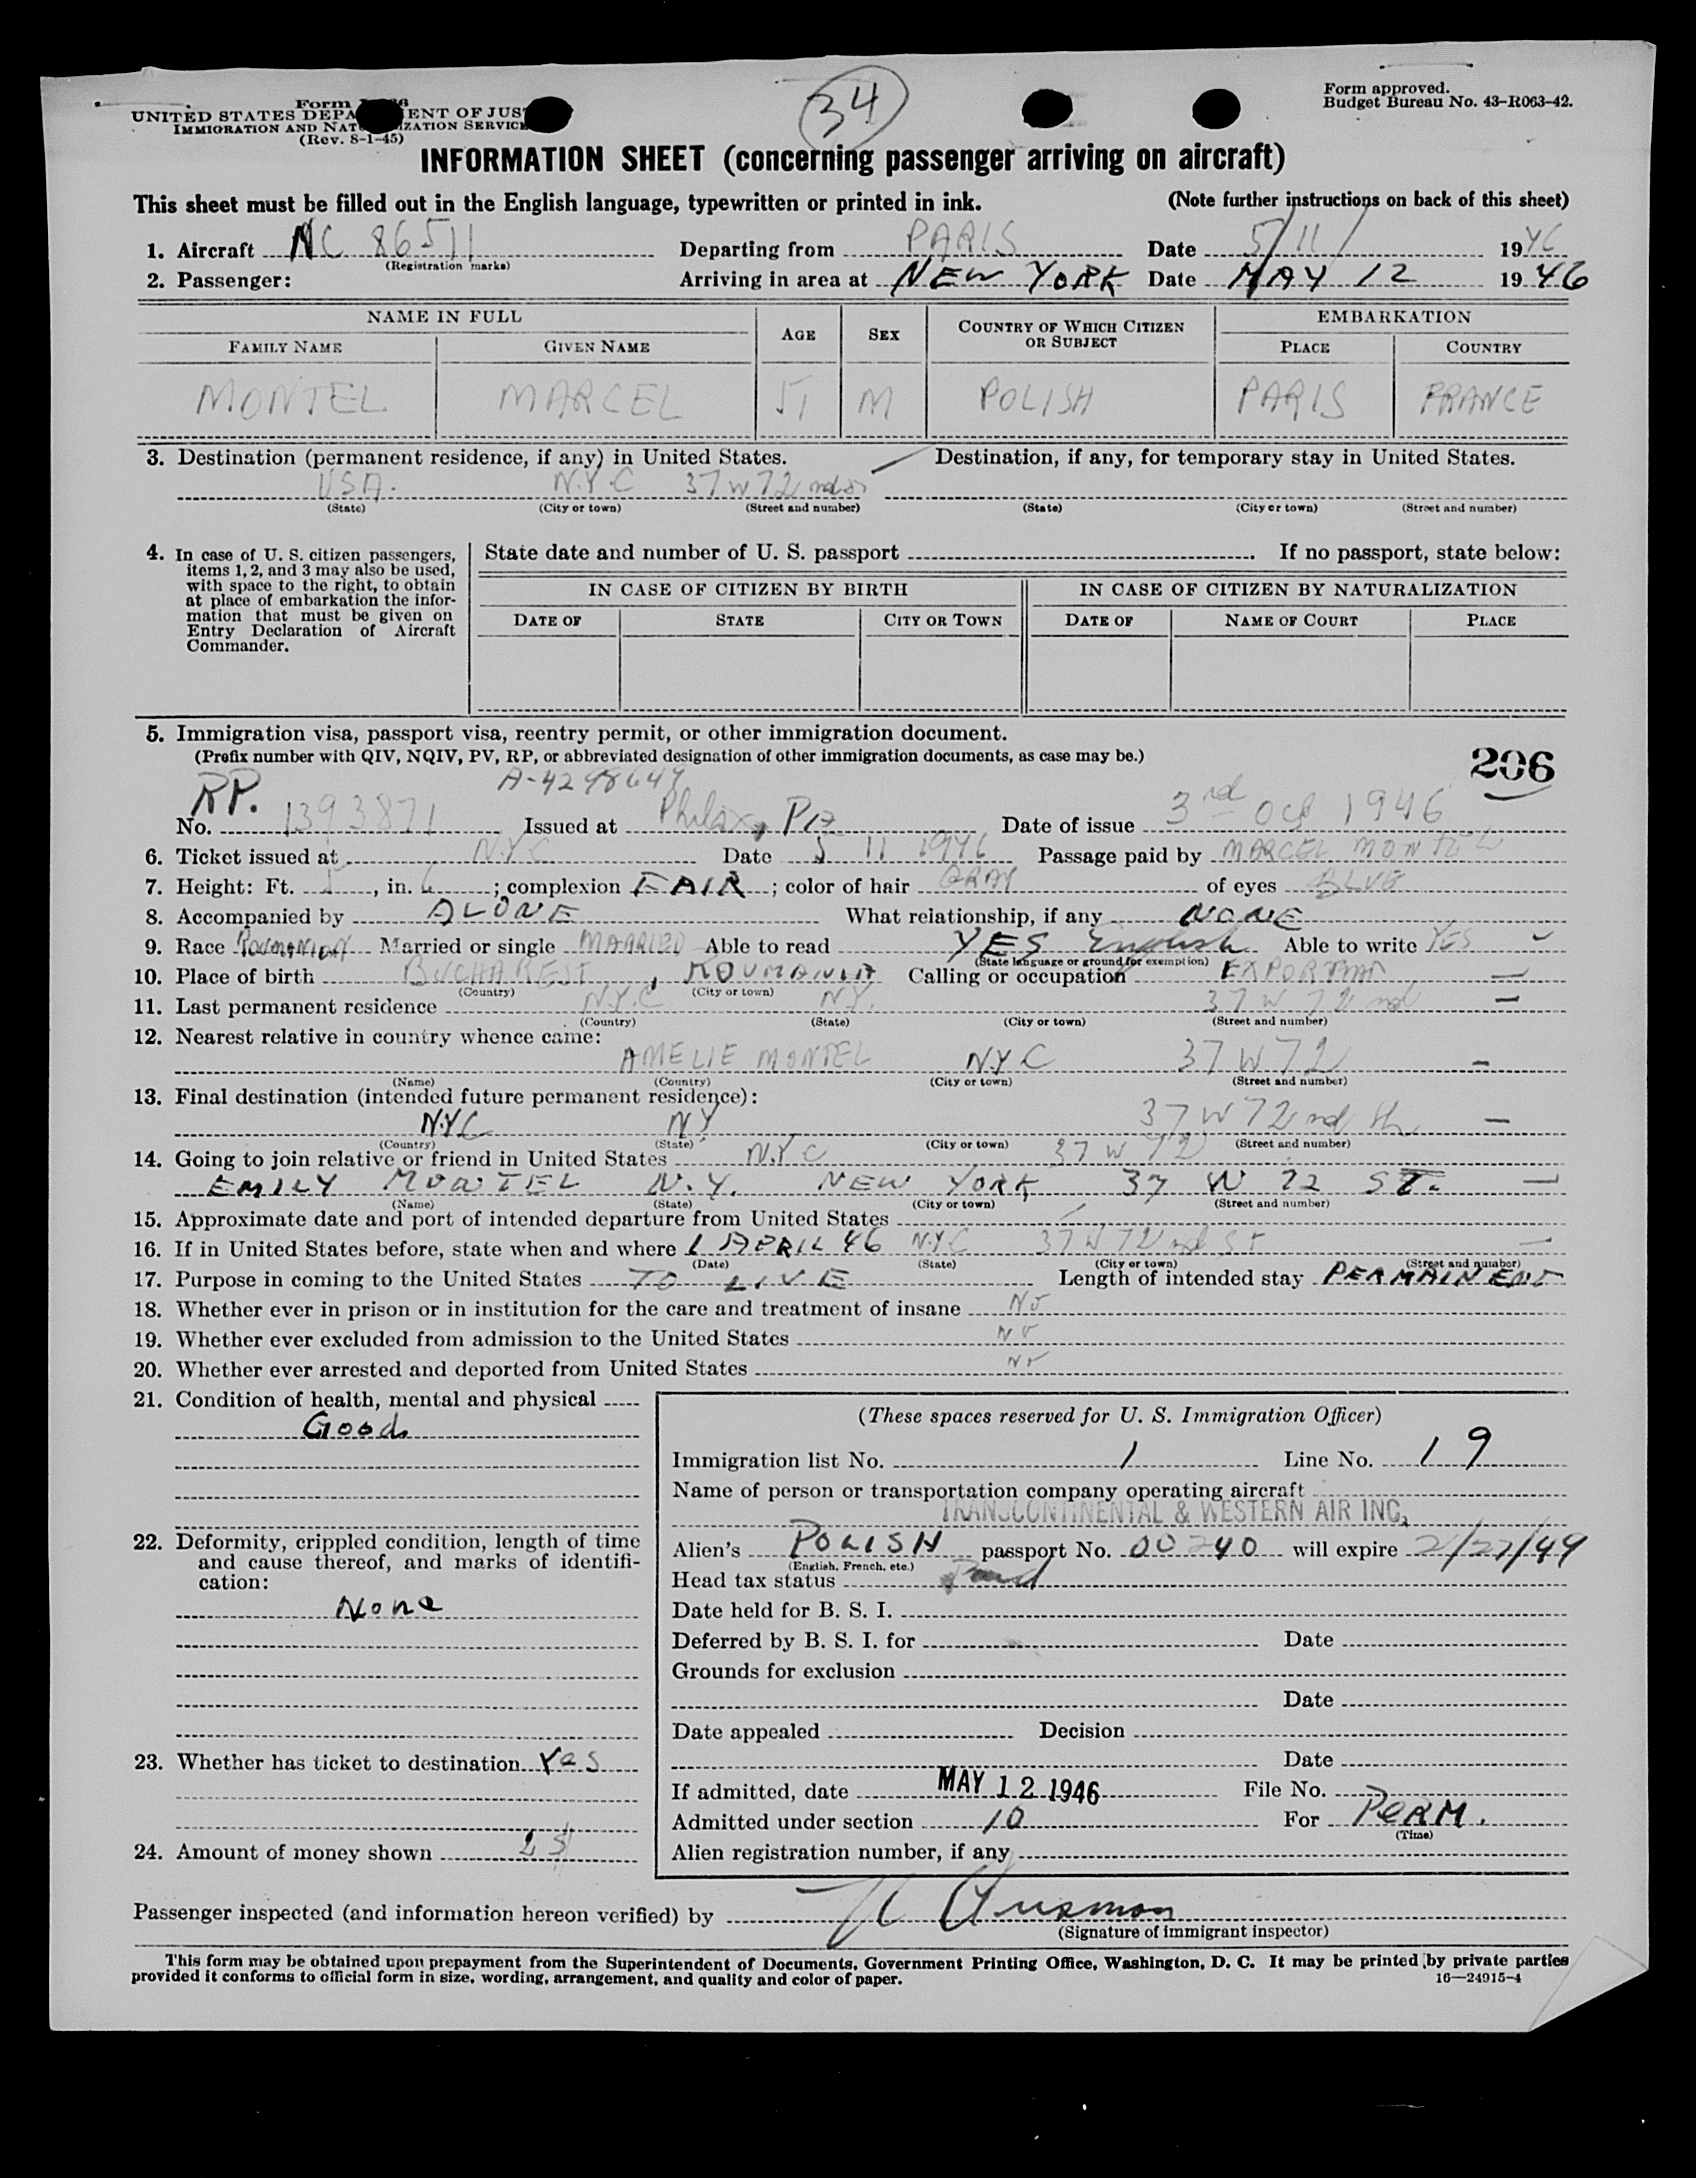 34
Form
UNITED STATES DEPA ENT OF JUS
IMMIGRATION AND NAT IZATION SERVICE
(Rev. 8-1-45)
Form approved.
Budget Bureau No. 43-R063-42.
INFORMATION SHEET (concerning passenger arriving on aircraft)
This sheet must be filled out in the English language, typewritten or printed in ink. (Note further instructions on back of this sheet)
1. Aircraft NC 86511 Departing from PARIS Date 5/11/ 1946
(Registration marks)
2. Passenger: Arriving in area at NEW YORK Date MAY 12 1946
NAME IN FULL AGE SEX COUNTRY OF WHICH CITIZEN OR SUBJECT EMBARKATION
FAMILY NAME GIVEN NAME PLACE COUNTRY
MONTEL MARCEL 51 M POLISH PARIS FRANCE
3. Destination (permanent residence, if any) in United States. Destination, if any, for temporary stay in United States.
USA. N.Y.C 37 W 72 nd St
(State) (City or town) (Street and number) (State) (City or town) (Street and number)
4. In case of U. S. citizen passengers, items 1, 2, and 3 may also be used, with space to the right, to obtain at place of embarkation the information that must be given on Entry Declaration of Aircraft Commander.
State date and number of U. S. passport If no passport, state below:
IN CASE OF CITIZEN BY BIRTH IN CASE OF CITIZEN BY NATURALIZATION
DATE OF STATE CITY OR TOWN DATE OF NAME OF COURT PLACE
5. Immigration visa, passport visa, reentry permit, or other immigration document.
(Prefix number with QIV, NQIV, PV, RP, or abbreviated designation of other immigration documents, as case may be.)
206
RP. A-4298647
No. 1393871 Issued at Phila, PA Date of issue 3rd Oct 1946
6. Ticket issued at N.Y.C Date 5 11 1946 Passage paid by MARCEL MONTEL
7. Height: Ft. 5, in. 6; complexion FAIR; color of hair GRAY of eyes BLUE
8. Accompanied by ALONE What relationship, if any NONE
9. Race ROUMANIAN Married or single MARRIED Able to read YES English Able to write YES
(State language or ground for exemption)
10. Place of birth BUCHAREST, ROUMANIA Calling or occupation
(Country) (City or town)
11. Last permanent residence N.Y.C N.Y. 37 W 72 nd
(Country) (State) (City or town) (Street and number)
12. Nearest relative in country whence came:
AMELIE MONTEL N.Y.C 37 W 72
(Name) (Country) (City or town) (Street and number)
13. Final destination (intended future permanent residence):
N.Y.C NY 37 W 72 nd St
(Country) (State) (City or town) (Street and number)
14. Going to join relative or friend in United States N.Y.C 37 W 72
EMILY MONTEL N.Y. NEW YORK 37 W 72 ST.
(Name) (State) (City or town) (Street and number)
15. Approximate date and port of intended departure from United States
16. If in United States before, state when and where 1 APRIL 46 N.Y.C 37 W 72 nd St
(Date) (State) (City or town) (Street and number)
17. Purpose in coming to the United States TO LIVE Length of intended stay PERMAINENT
18. Whether ever in prison or in institution for the care and treatment of insane NO
19. Whether ever excluded from admission to the United States NO
20. Whether ever arrested and deported from United States NO
21. Condition of health, mental and physical
Good
22. Deformity, crippled condition, length of time and cause thereof, and marks of identification:
None
23. Whether has ticket to destination Yes
24. Amount of money shown
(These spaces reserved for U. S. Immigration Officer)
Immigration list No. 1 Line No. 19
Name of person or transportation company operating aircraft
TRANSCONTINENTAL & WESTERN AIR INC.
Alien's POLISH passport No. 00240 will expire 2/27/49
(English, French, etc.)
Head tax status Paid
Date held for B. S. I.
Deferred by B. S. I. for Date
Grounds for exclusion
Date
Date appealed Decision
Date
If admitted, date MAY 12 1946 File No.
Admitted under section 10 For PERM.
(Time)
Alien registration number, if any
Passenger inspected (and information hereon verified) by
(Signature of immigrant inspector)
This form may be obtained upon prepayment from the Superintendent of Documents, Government Printing Office, Washington, D. C. It may be printed by private parties
provided it conforms to official form in size, wording, arrangement, and quality and color of paper.
16—24915-4